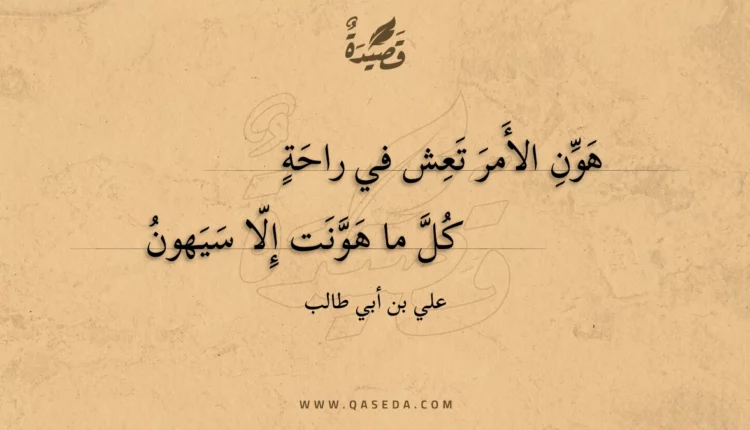 قَصِيدَةٌ
هَوِّنِ الأَمرَ تَعِش في راحَةٍ
كُلَّ ما هَوَّنَت إِلّا سَيَهونُ
علي بن أبي طالب
WWW.QASEDA.COM